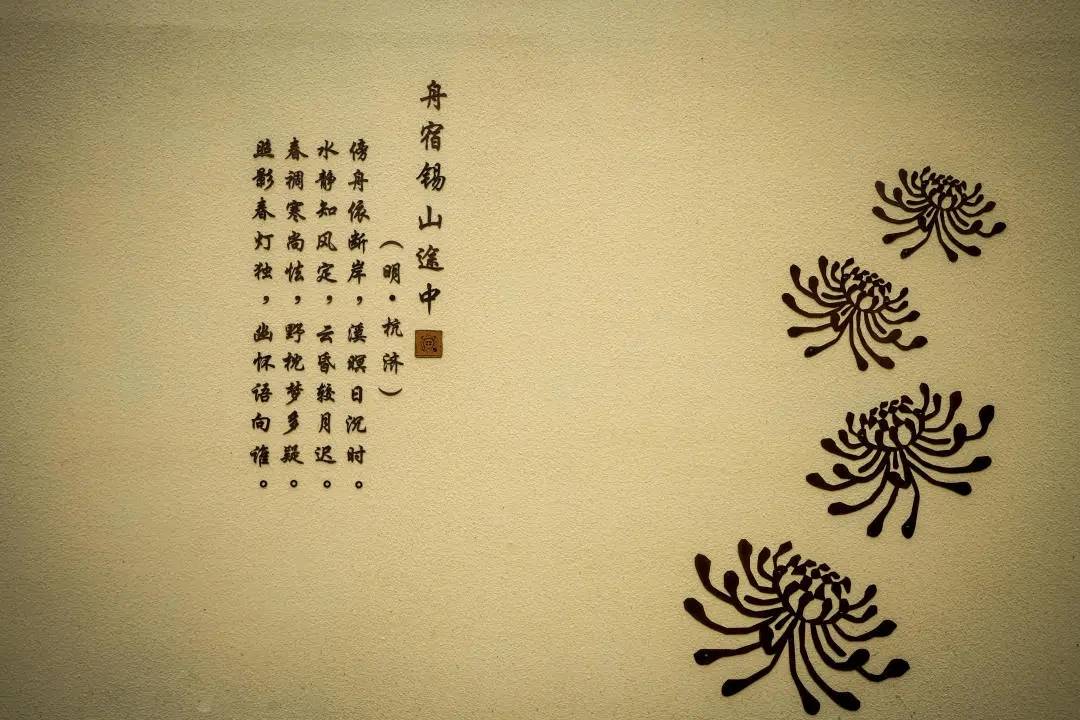 舟宿锡山途中
（明·杭济）
傍舟依断岸，溪暝日沉时。
水静知风定，云昏较月迟。
春调寒尚怯，野枕梦多疑。
照影春灯独，幽怀语向谁。